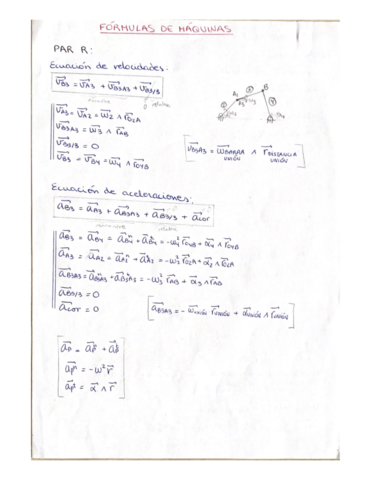 FÓRMULAS DE MÁQUINAS
PAR R:
Ecuación de velocidades:
v⃗B3 = v⃗A3 + v⃗B3A3 + v⃗B3/3
relativa
v⃗A3 = v⃗A2 = ω⃗2 ∧ r⃗O2A
v⃗B3A3 = ω⃗3 ∧ r⃗AB
v⃗B3/3 = 0
v⃗B3 = v⃗B4 = ω⃗4 ∧ r⃗O4B
[v⃗B3A3 = ω⃗BARRA UNIÓN ∧ r⃗DISTANCIA UNIÓN]
Ecuación de aceleraciones:
a⃗B3 = a⃗A3 + a⃗B3A3 + a⃗B3/3 + a⃗cor
relativa
a⃗B3 = a⃗B4 = a⃗ⁿB4 + a⃗ᵗB4 = -ω4² r⃗O4B + α⃗4 ∧ r⃗O4B
a⃗A3 = a⃗A2 = a⃗ⁿA2 + a⃗ᵗA2 = -ω2² r⃗O2A + α⃗2 ∧ r⃗O2A
a⃗B3A3 = a⃗ⁿB3A3 + a⃗ᵗB3A3 = -ω3² r⃗AB + α⃗3 ∧ r⃗AB
a⃗B3/3 = 0
a⃗cor = 0
[a⃗B3A3 = -ω²UNIÓN r⃗UNIÓN + α⃗UNIÓN ∧ r⃗UNIÓN]
a⃗P = a⃗Pⁿ + a⃗Pᵗ
a⃗Pⁿ = -ω² r⃗
a⃗Pᵗ = α⃗ ∧ r⃗